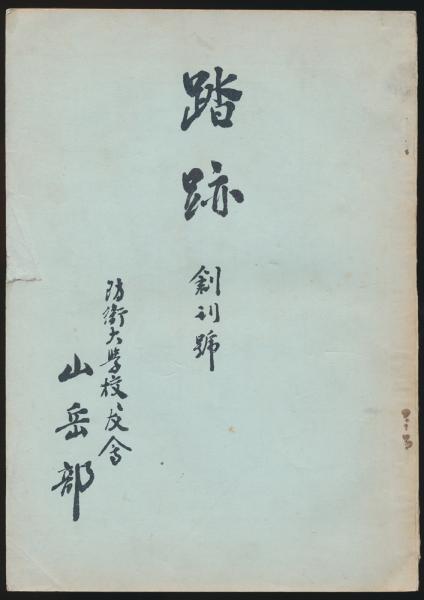 踏跡
創刊號
防衛大學校々友會
山岳部